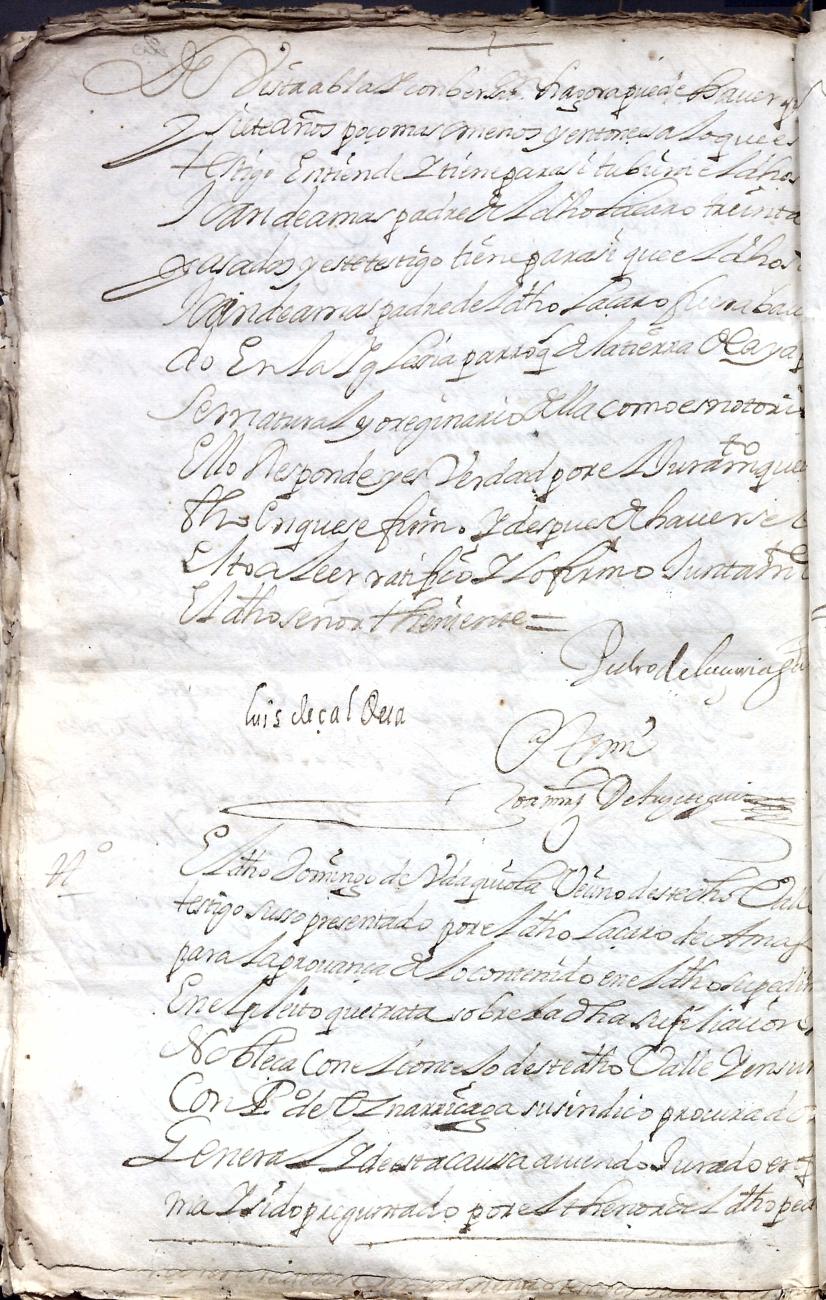 De Vista abla y conbersn. hagora puede haver
siete años poco mas o menos y entonces a lo que es
testigo Entiende y tiene para si tubiese el dho
Juan de amas padre del dho Lacaro treinta
pasados y este testigo tiene para si que el dho
Juan de amas padre del dho Lacaro fuera bau
do En la Iglesia parroq de la tierra
ser natural y oreginario della como es notorio
Ello Responde y es Verdad por el Juramto que
tho En que se firmo Y despues de haverse
Elto a leer ratifico Y lo firmo Juntamte
El dho señor theniente =
Pedro de
luis de çaldera
Ante mi
tº
El dho Domingo de Vdaquiola Veçino deste dho Valle
testigo suso presentado por el dho Laçaro de Amas
para la provança de lo contenido en el dho su pedim
En el pleito que trata sobre la dha su filiaçion
Nobleca Con el conçejo deste dho Valle Y en su n
Con Pº de su sindico procurador
General Y de esta causa aviendo Jurado en f
ma Y sido preguntado por el thenor del dho ped